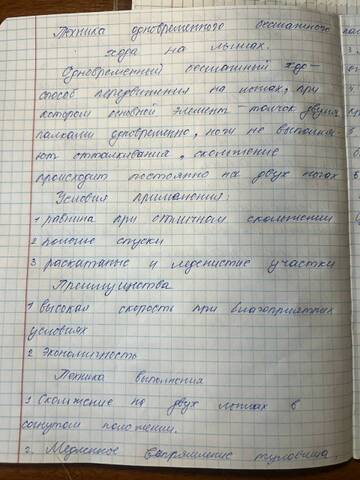 Техника одновременного бесшажного
хода на лыжах.
Одновременный бесшажный ход -
способ передвижения на лыжах, при
котором основной элемент - толчок двумя
палками одновременно, ноги не выполня-
ют отталкивания, скольжение
происходит постоянно на двух ногах
Условия применения:
1 равнина при отличном скольжении
2 пологие спуски
3 раскатаные и леденистие участки
Преимущества
1 высокая скорость при благоприятных
условиях
2 Экономичность
Техника выполнения
1 Скольжение на двух лыжах в
согнутом положении.
2. Медленное выпрямление туловища.